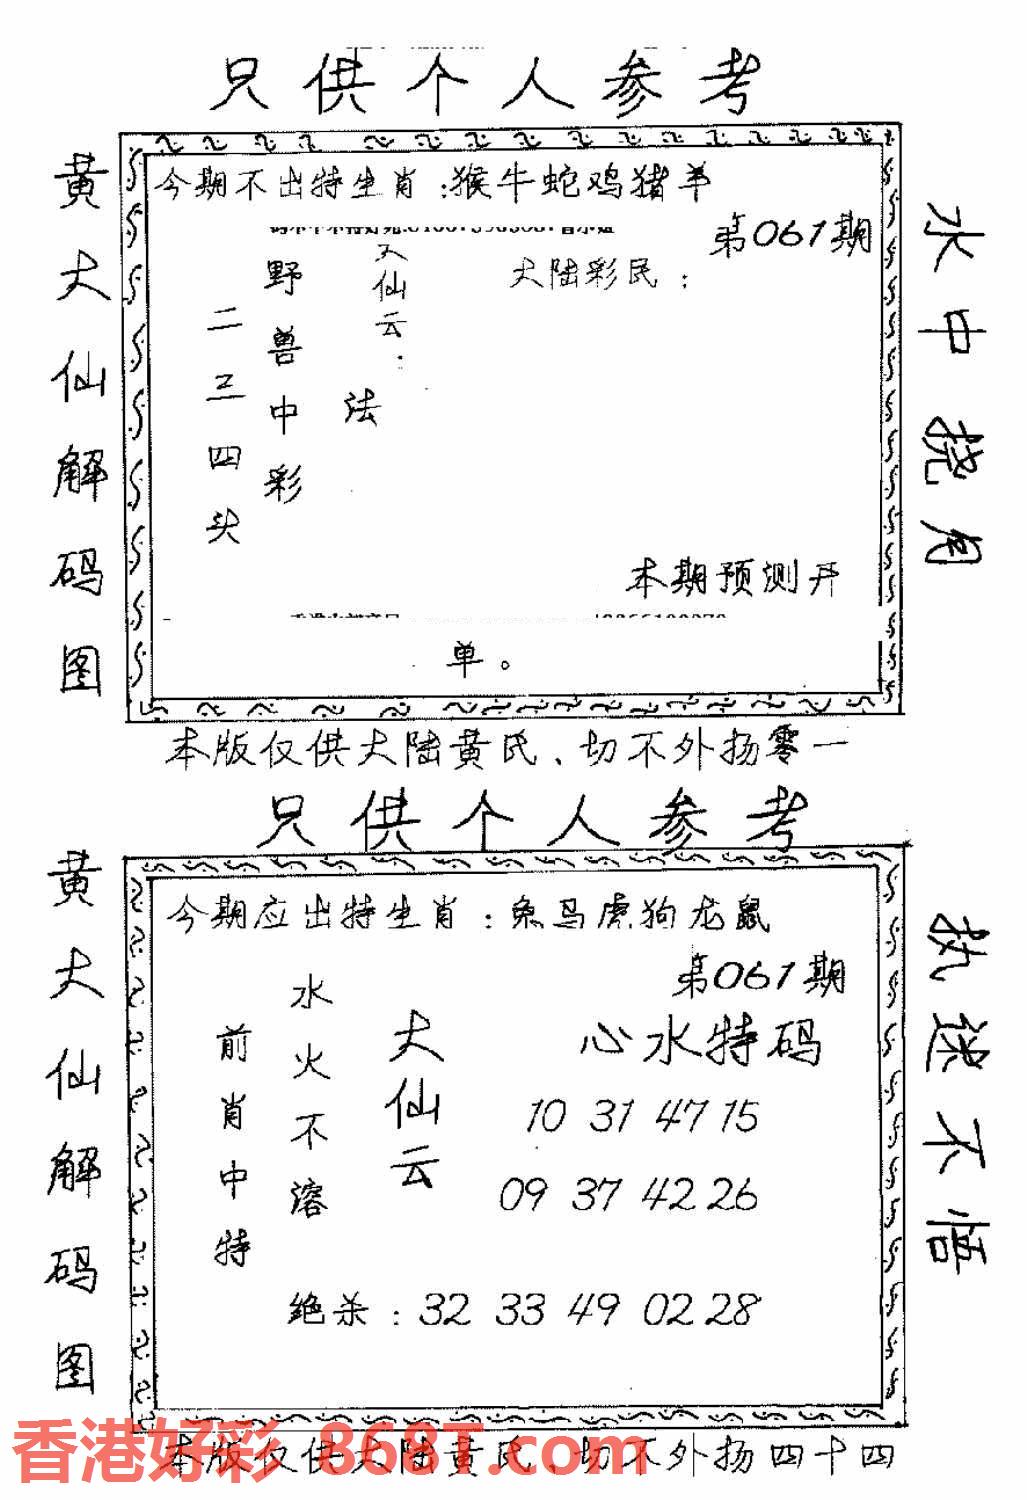 只供个人参考
黄大仙解码图
今期不出特生肖:猴牛蛇鸡猪羊
第061期
大陆彩民:
大仙云:
法
野兽中彩
二三四头
本期预测开
单。
水中挠月
本版仅供大陆黄氏、切不外扬零一
只供个人参考
黄大仙解码图
今期应出特生肖:兔马虎狗龙鼠
第061期
心水特码
10 31 47 15
09 37 42 26
大仙云
水火不溶
前肖中特
绝杀:32 33 49 02 28
执迷不悟
本版仅供大陆黄氏、切不外扬四十四
香港好彩 868T.com